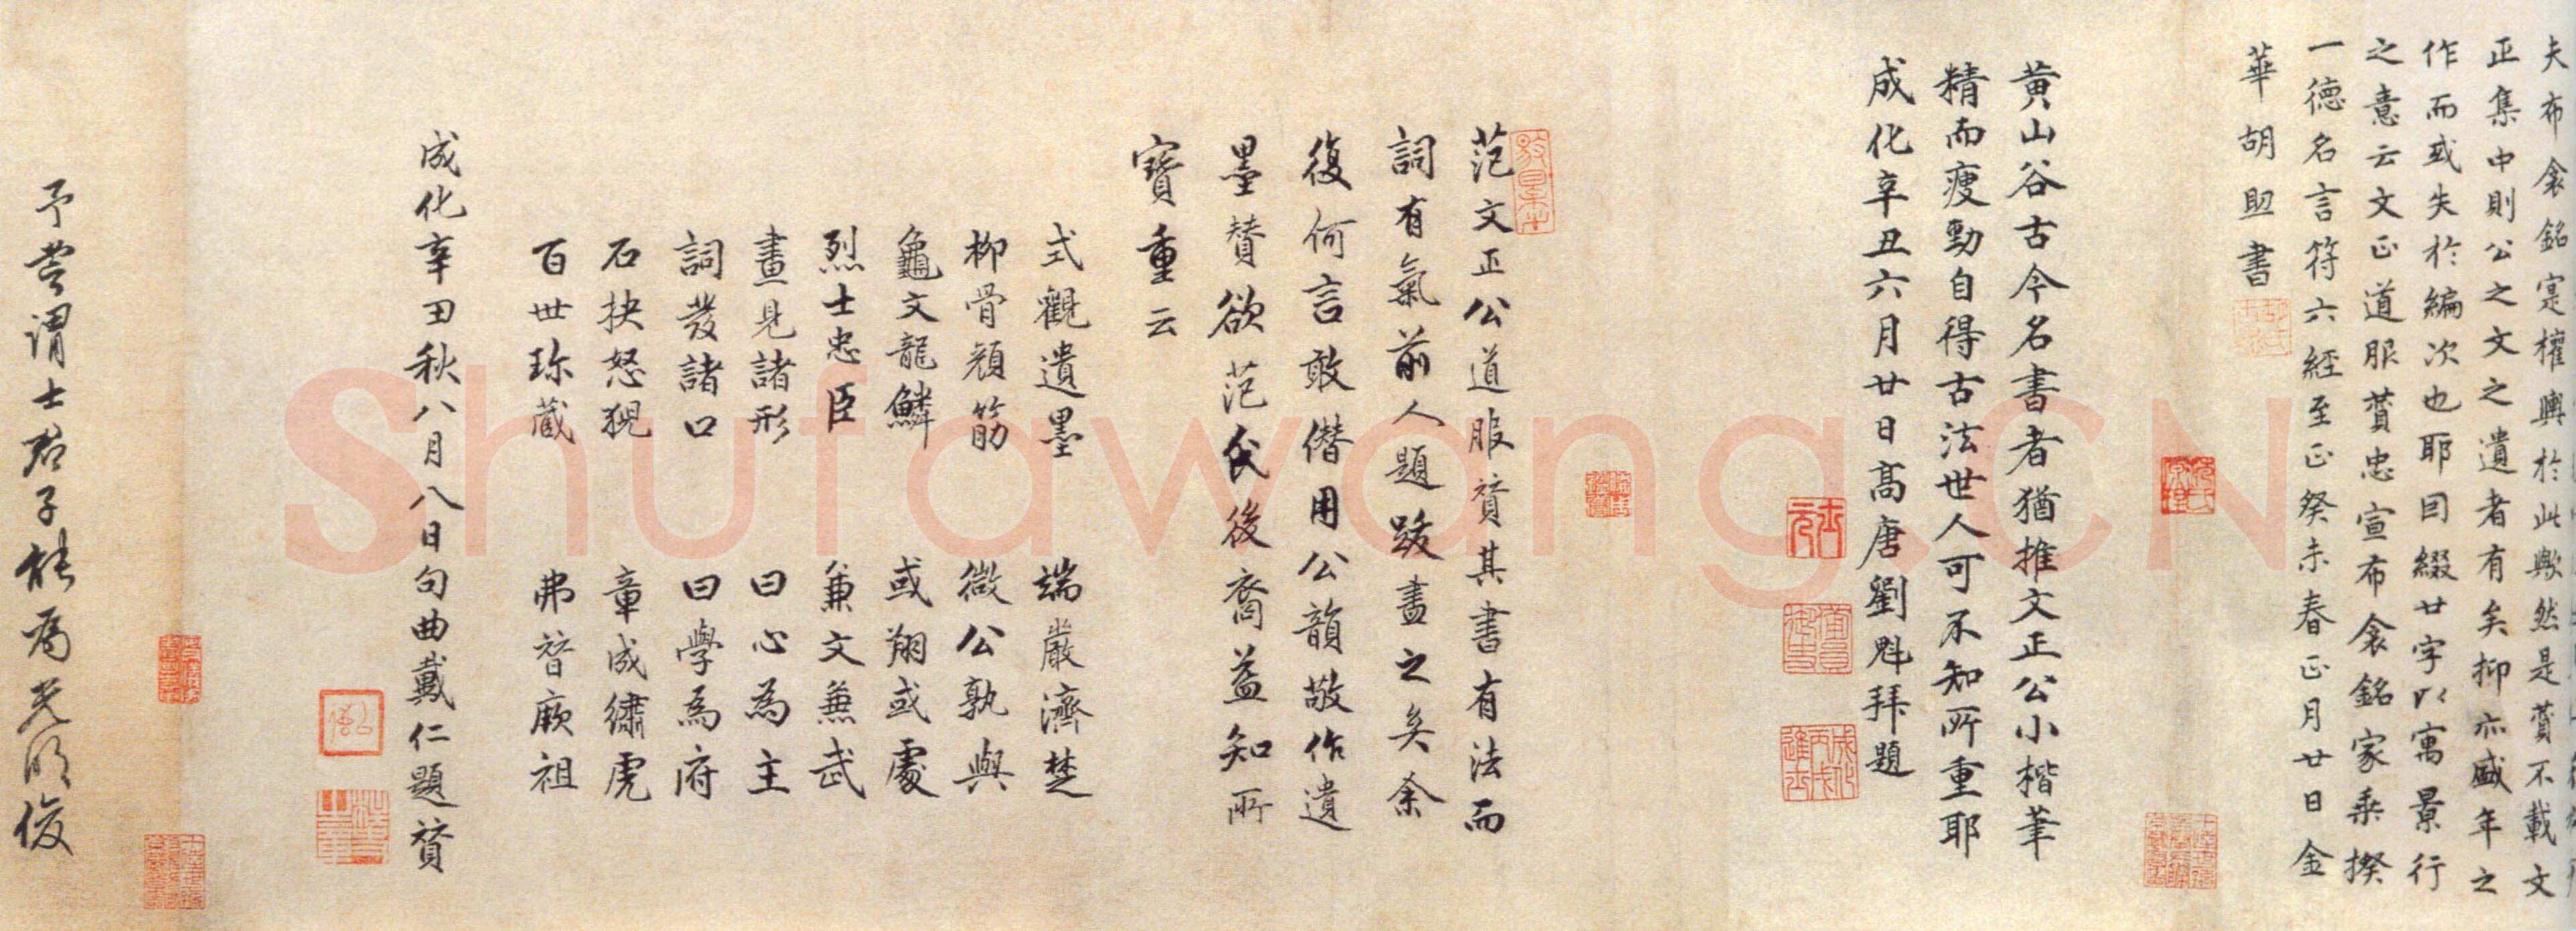 夫布衾銘寔權輿於此歟然是賛不載文
正集中則公之文之遺者有矣抑亦盛年之
作而或失於編次也耶因綴廿字以寓景行
之意云文正道服賛忠宣布衾銘家乘揆
一德名言符六經至正癸未春正月廿日金
華胡助書
黄山谷古今名書者猶推文正公小楷筆
精而瘦勁自得古法世人可不知所重耶
成化辛丑六月廿日髙唐劉魁拜題
范文正公道服賛其書有法而
詞有氣前人題跋盡之矣余
復何言敢僭用公韻敬作遺
墨賛欲范氏後裔益知所
寳重云
式觀遺墨 端嚴濟楚
柳骨顔筋 微公孰與
龜文龍鱗 或翔或處
烈士忠臣 兼文兼武
畫見諸形 曰心為主
詞發諸口 曰學為府
石抉怒猊 章成繡虎
百世珎藏 弗替厥祖
成化辛丑秋八月八日句曲戴仁題賛
予嘗謂士君子能為光明俊
Shufawang.CN